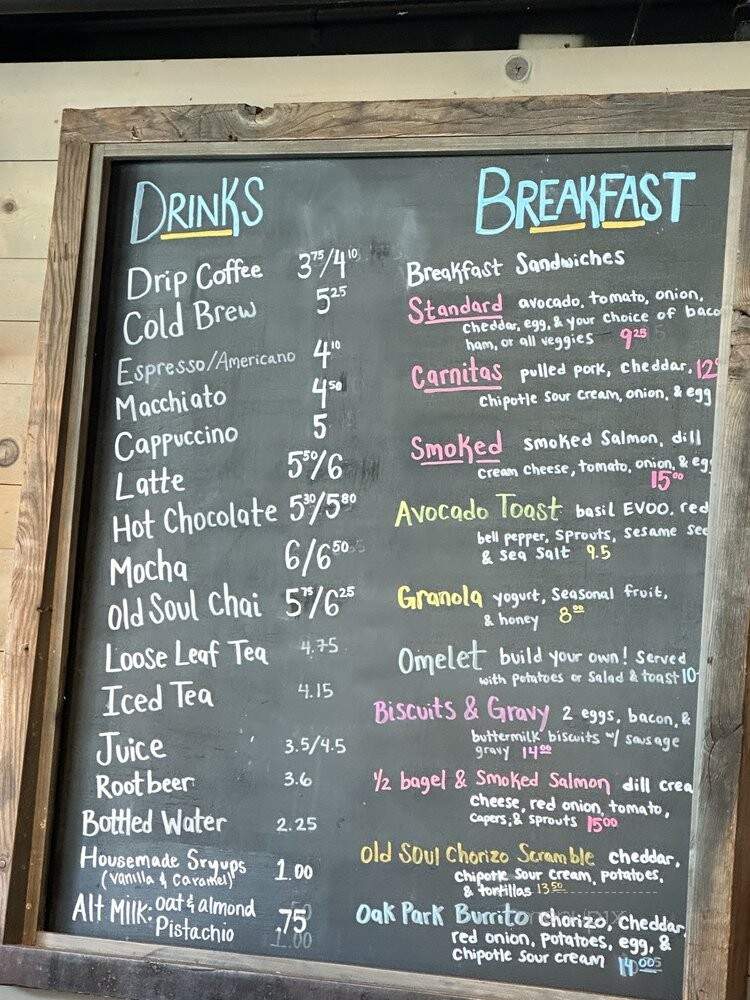 DRINKS
Drip Coffee 3.75/4.10
Cold Brew 5.25
Espresso/Americano 4.10
Macchiato 4.50
Cappuccino 5
Latte 5.50/6
Hot Chocolate 5.30/5.80
Mocha 6/6.50
Old Soul Chai 5.75/6.25
Loose Leaf Tea 4.75
Iced Tea 4.15
Juice 3.5/4.5
Rootbeer 3.6
Bottled Water 2.25
Housemade Sryups 1.00
(Vanilla & Caramel)
Alt Milk: oat & almond .75
Pistachio 1.00
BREAKFAST
Breakfast Sandwiches
Standard avocado, tomato, onion,
cheddar, egg, & your choice of baco
ham, or all veggies 9.25
Carnitas pulled pork, cheddar, 12
chipotle sour cream, onion, & egg
Smoked smoked Salmon, dill
cream cheese, tomato, onion, & eg
15.00
Avocado Toast basil EVOO, red
bell pepper, Sprouts, sesame see
& sea salt 9.5
Granola yogurt, Seasonal fruit,
& honey 8.00
Omelet build your own! Served
with potatoes or Salad & toast 10
Biscuits & Gravy 2 eggs, bacon, &
buttermilk biscuits w/ sausage
gravy 14.00
1/2 bagel & Smoked Salmon dill crea
cheese, red onion, tomato,
capers, & sprouts 15.00
Old Soul Chorizo Scramble cheddar,
chipotle sour cream, potatoes,
& tortillas 13.50
Oak Park Burrito Chorizo, Cheddar,
red onion, potatoes, egg, &
Chipotle Sour cream 14.00